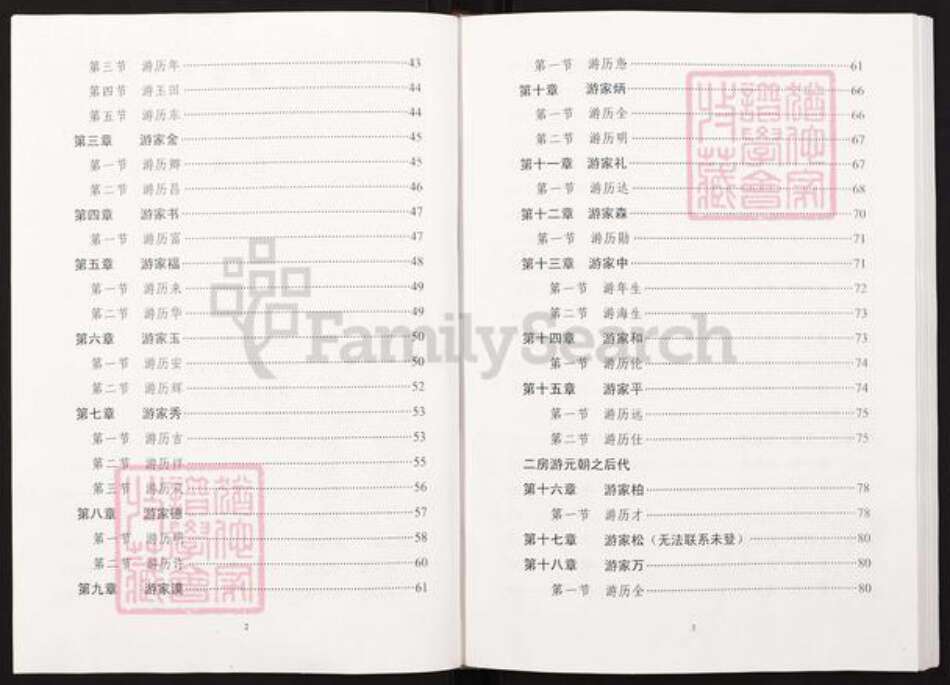 第三节 游历年 43
第四节 游玉田 44
第五节 游历东 44
第三章 游家金 45
第一节 游历卿 45
第二节 游历昌 46
第四章 游家书 47
第一节 游历富 47
第五章 游家福 48
第一节 游历来 49
第二节 游历华 49
第六章 游家玉 50
第一节 游历安 50
第二节 游历辉 52
第七章 游家秀 53
第一节 游历吉 53
第二节 游历祥 55
第三节 游历 56
第八章 游家德 57
第一节 游历明 58
第二节 游历许 60
第九章 游家谟 61
2
第一节 游历惠 61
第十章 游家炳 66
第一节 游历全 66
第二节 游历明 67
第十一章 游家礼 67
第一节 游历达 68
第十二章 游家森 70
第一节 游历勋 71
第十三章 游家申 71
第一节 游年生 72
第二节 游海生 73
第十四章 游家和 73
第一节 游历伦 74
第十五章 游家平 74
第一节 游历远 75
第二节 游历仕 75
二房游元朝之后代
第十六章 游家柏 78
第一节 游历才 78
第十七章 游家松（无法联系未登） 80
第十八章 游家万 80
第一节 游历全 80
3
FamilySearch